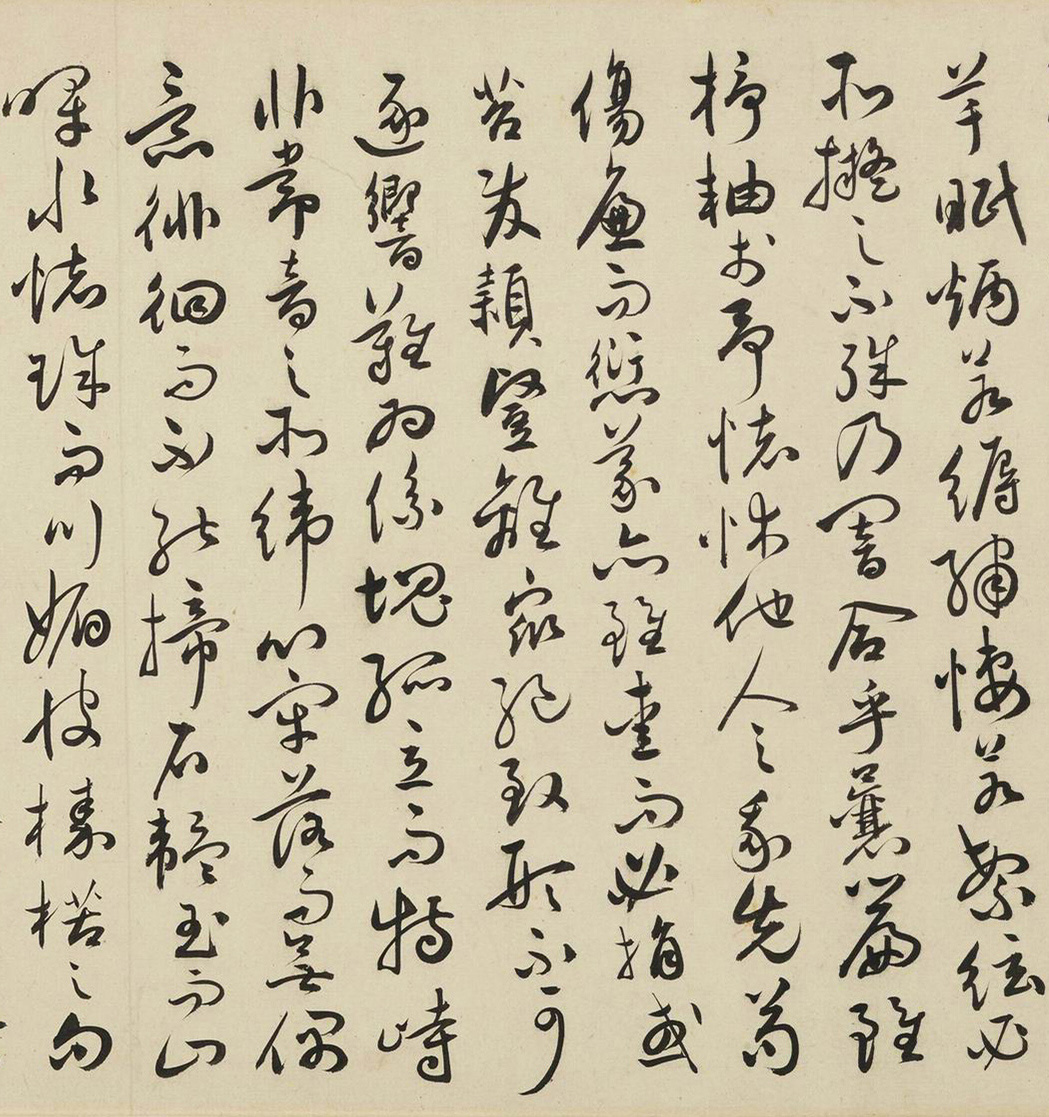 芊眠炳若縟繡悽若繁絃必
所擬之不殊乃闇合乎曩篇雖
杼軸於予懷怵他人之我先苟
傷廉而愆義亦雖愛而必捐或
苕發穎豎離眾絕致形不可
逐響難為係塊孤立而特峙
非常音之所緯心牢落而無偶
意徘徊而不能揥石韞玉而山
暉水懷珠而川媚彼榛楛之勿